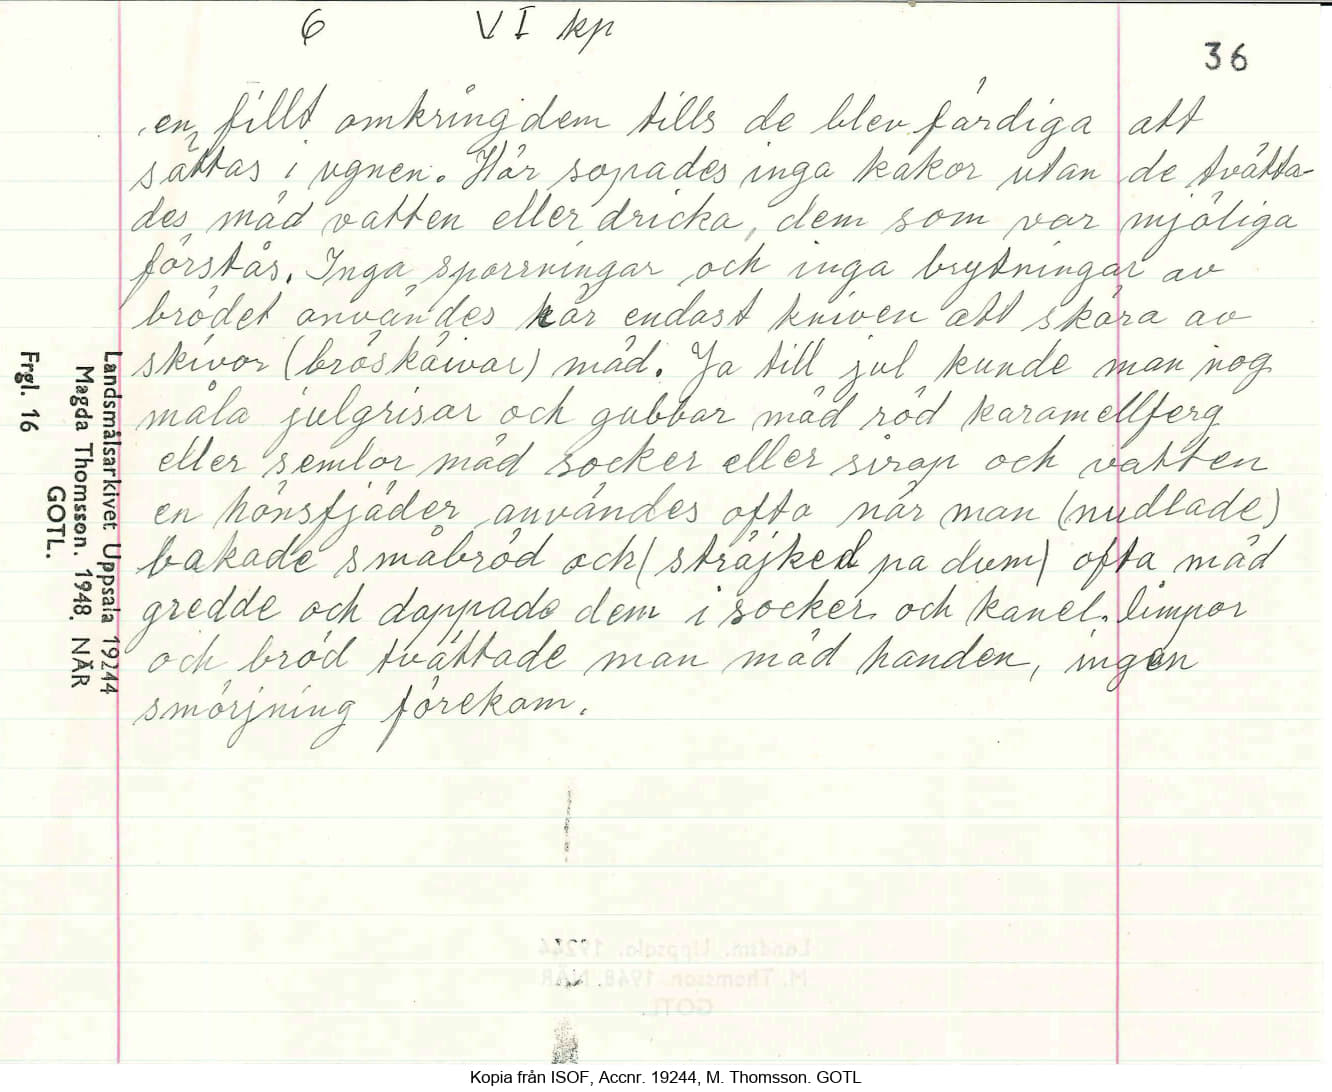 6 VI kp
36
en fillt omkring dem tills de blev färdiga att
sättas i ugnen. Här sopades inga kakor utan de tvätta-
des mäd vatten eller dricka, dem som var mjöliga
förstås. Inga sporrningar och inga brytningar av
brödet användes här endast kniven att skära av
skivor (bröskäivar) mäd. Ja till jul kunde man nog
måla julgrisar och gubbar mäd röd karamellferg
eller semlor mäd socker eller sirap och vatten
en hönsfjäder användes ofta när man (nudlade)
bakade småbröd och (sträjked pa dum) ofta mäd
gredde och doppade dem i socker och kanel. limpor
och bröd tvättade man mäd handen, ingen
smörjning förekom.
Landsmålsarkivet Uppsala 19244
Magda Thomsson. 1948. NÄR
GOTL.
Frgl. 16
Landsm. Uppsala. 19244
M. Thomsson 1948. NÄR
GOTL.
Kopia från ISOF, Accnr. 19244, M. Thomsson. GOTL